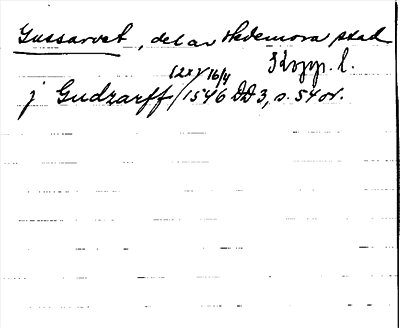 Gussarvet, del av Hedemora stad
Kopp. l.
(2x) 16/4
j Gudzarff / 1546 DD 3, s. 54 v.